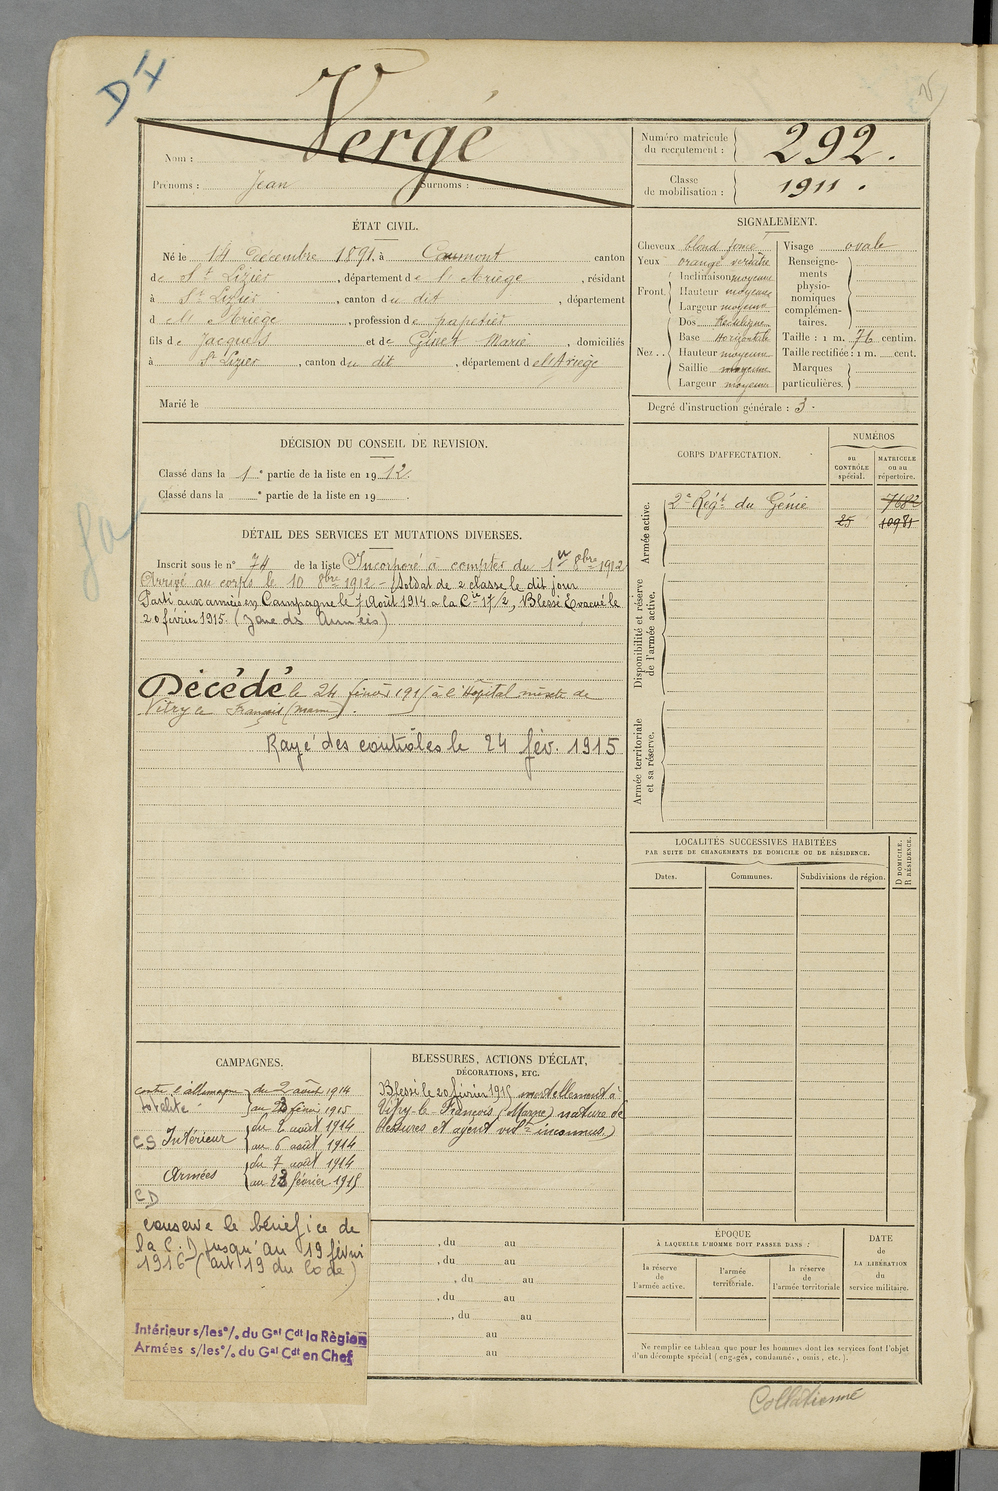 DI
Nom : Vergé
Prénoms : Jean Surnoms :
Numéro matricule du recrutement : 292.
Classe de mobilisation : 1911.
ÉTAT CIVIL.
Né le 14 Décembre 1891, à Caumont canton
de St Lizier, département de l'Ariège, résidant
à St Lizier, canton du dit, département
d el'Ariège, profession de papetier
fils de Jacques et de Ginet Marie, domiciliés
à St Lizier, canton du dit, département d el'Ariège
Marié le
SIGNALEMENT.
Cheveux blond foncé
Yeux orangé verdâtre
Front. Inclinaison moyenne
Hauteur moyenne
Largeur moyenne
Nez . . Dos Rectiligne
Base Horizontale
Hauteur moyenne
Saillie moyenne
Largeur moyenne
Visage ovale
Renseigne-
ments
physio-
nomiques
complémen-
taires.
Taille : 1 m. 76 centim.
Taille rectifiée : 1 m. cent.
Marques
particulières.
Degré d'instruction générale : 3.
DÉCISION DU CONSEIL DE REVISION.
Classé dans la 1e partie de la liste en 1912.
Classé dans la e partie de la liste en 19 .
DÉTAIL DES SERVICES ET MUTATIONS DIVERSES.
Inscrit sous le n° 74 de la liste Incorporé à compter du 1er 8bre 1912
Arrivé au corps le 10 8bre 1912 - Soldat de 2 classe le dit jour
Parti aux armées en Campagne le 7 Août 1914 a la Cie 17/2, Blessé Evacué le
20 février 1915. (Zone des Armées)
Décédé le 24 février 1915 à l'Hôpital mixte de
Vitry le Français (Marne).
Rayé des contrôles le 24 fév. 1915
CORPS D'AFFECTATION.
NUMÉROS
au CONTRÔLE spécial.
MATRICULE ou au répertoire.
Armée active.
2e Régt du Génie 7682
25 10981
Disponibilité et réserve de l'armée active.
Armée territoriale et sa réserve.
LOCALITÉS SUCCESSIVES HABITÉES
PAR SUITE DE CHANGEMENTS DE DOMICILE OU DE RÉSIDENCE.
Dates. Communes. Subdivisions de région.
D DOMICILE.
R RÉSIDENCE.
CAMPAGNES.
contre l'allemagne du 2 août 1914
totalité au février 1915
CS Intérieur du 2 août 1914
au 6 août 1914
Armées du 7 août 1914
au février 1915
CD
conserve le bénéfice de
la C.D jusqu'au 19 févri
1916 (art 19 du Code)
Intérieur s/les °/. du Gal Cdt la Règion
Armées s/les °/. du Gal Cdt en Chef
BLESSURES, ACTIONS D'ÉCLAT,
DÉCORATIONS, ETC.
Blessé le 20 février 1915 mortellement à
Vitry-le-François (Marne) nature de
blessures et agent vult inconnus.)
, du au
, du au
, du au
, du au
, du au
au
au
ÉPOQUE
À LAQUELLE L'HOMME DOIT PASSER DANS :
la réserve de l'armée active.
l'armée territoriale.
la réserve de l'armée territoriale
DATE
de
LA LIBÉRATION
du
service militaire.
Ne remplir ce tableau que pour les hommes dont les services font l'objet
d'un décompte spécial (engagés, condamnés, omis, etc.).
Collationné